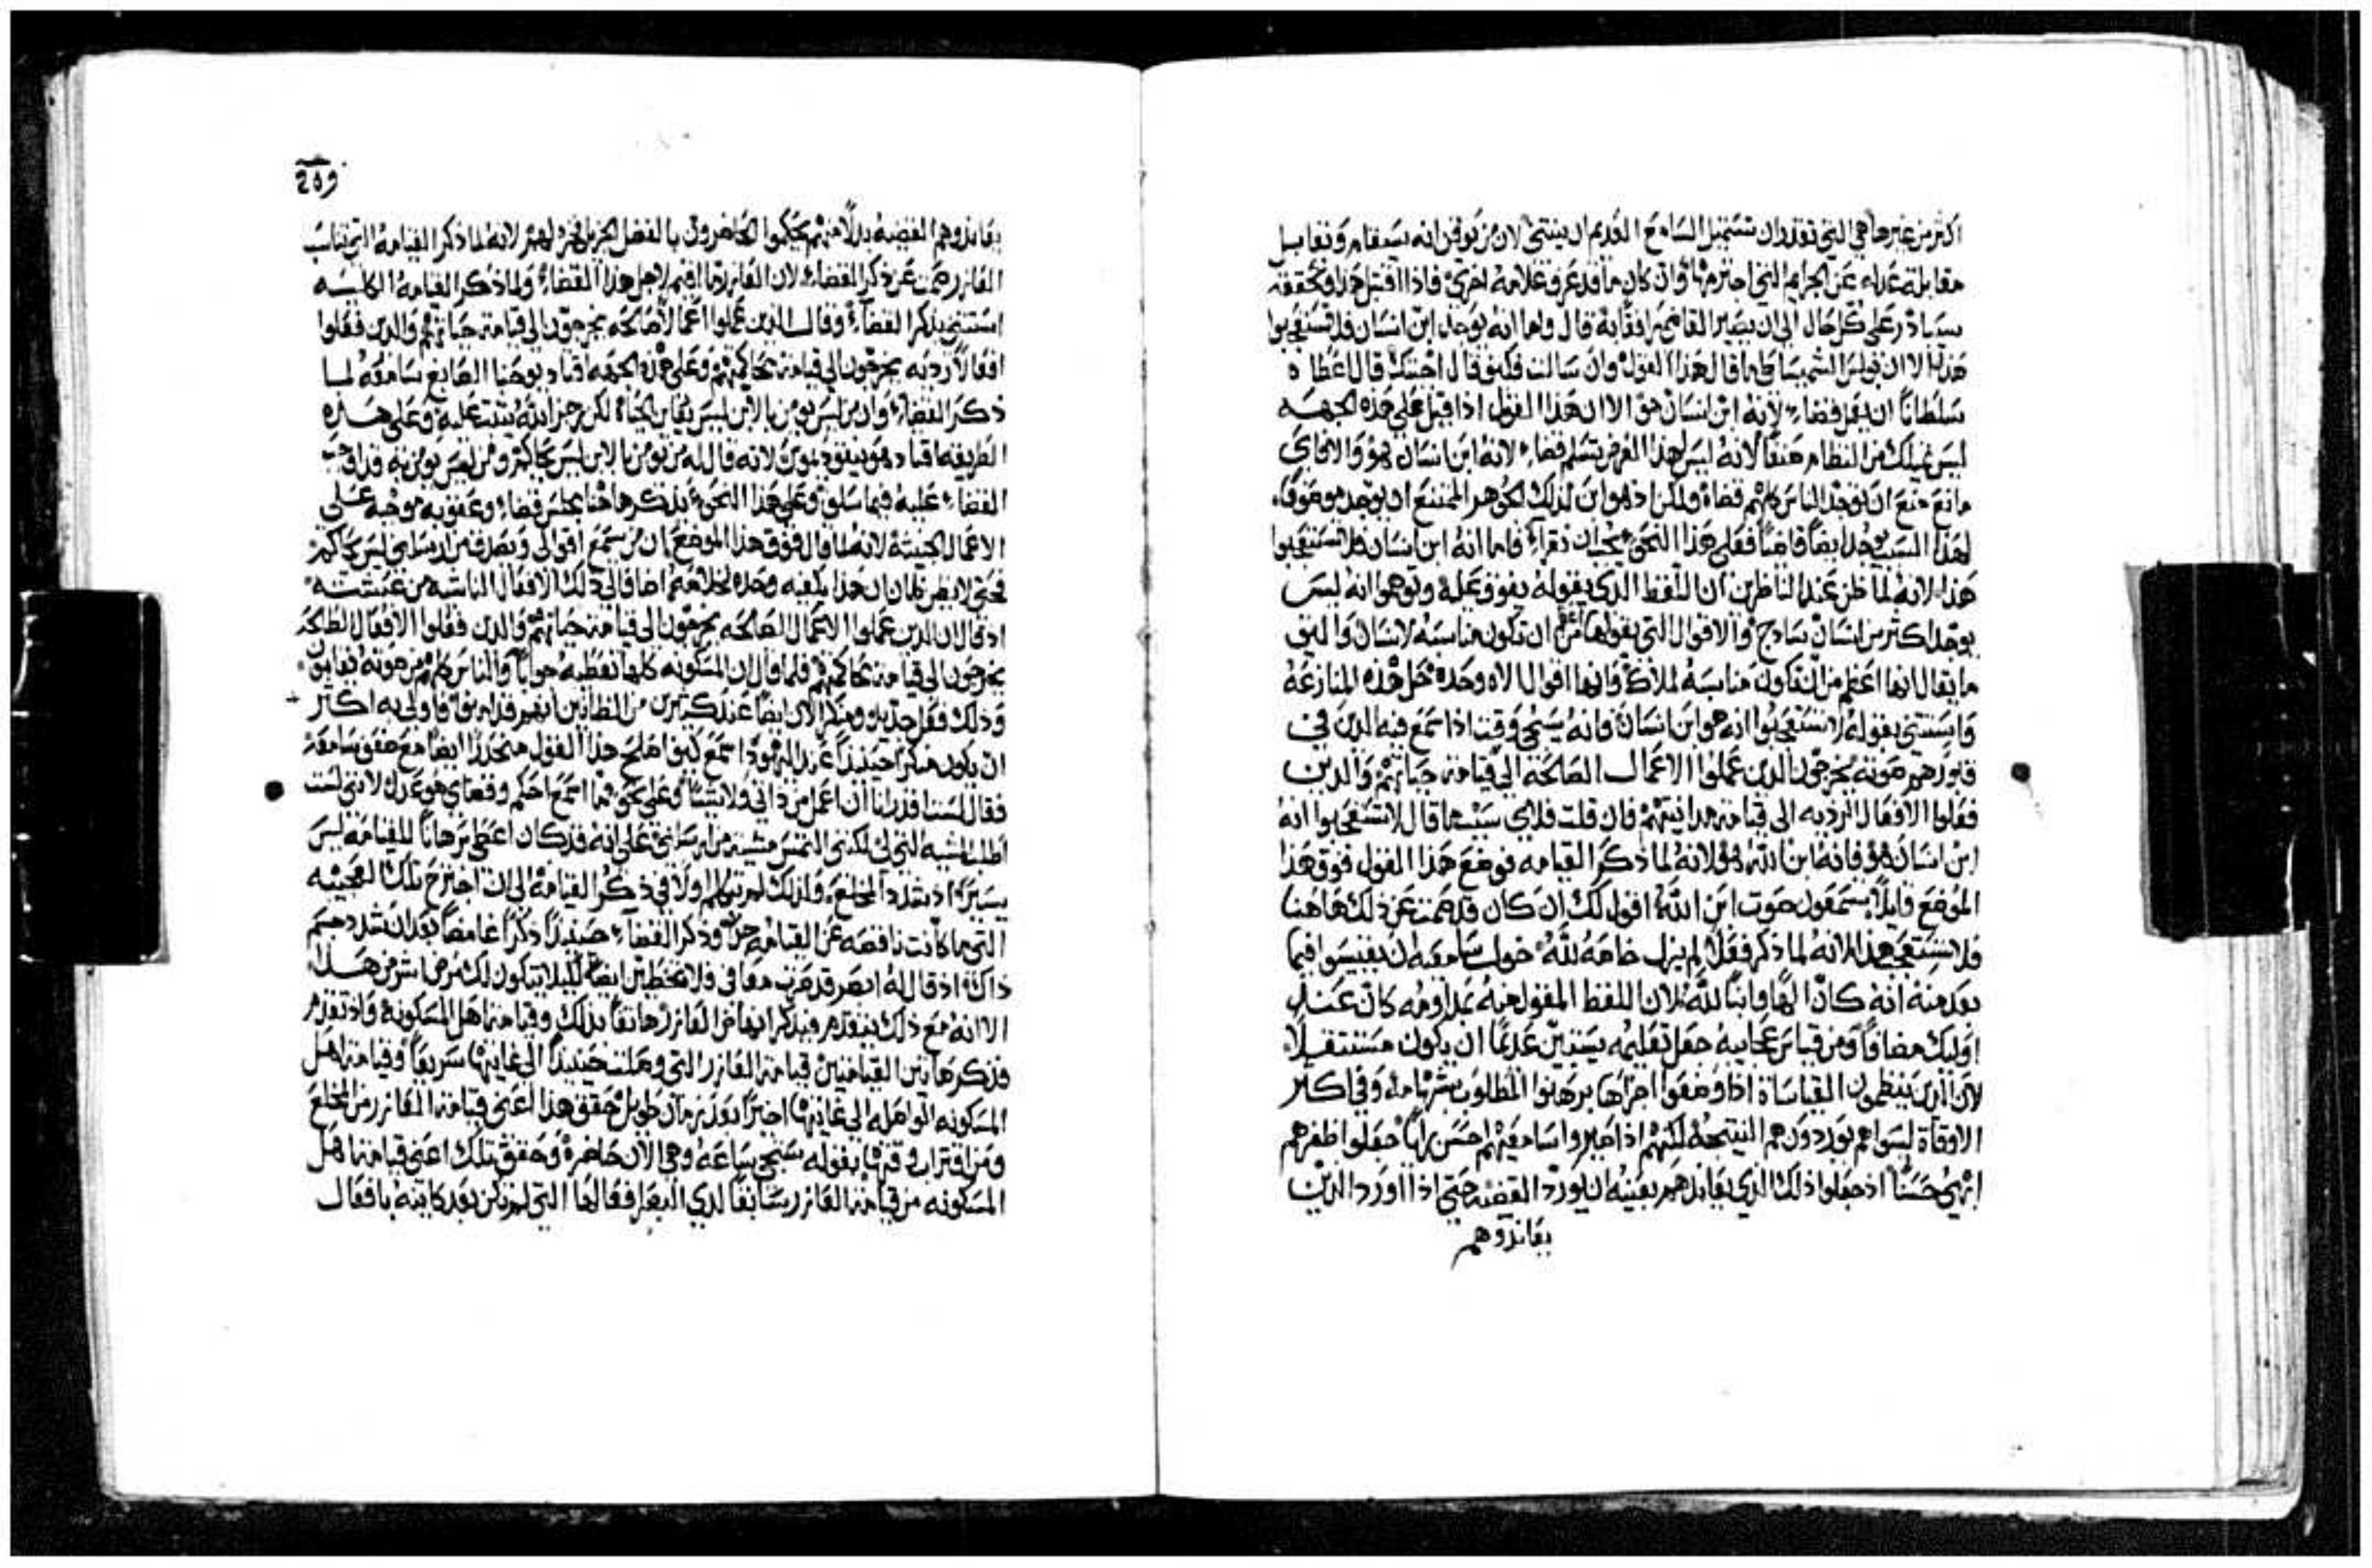 اكثر من غيرها هي التي تقتدر ان تستميل السامع القديم ان ينثني لان من يوقن انه سيقام ويقابل
مقابلة عدله عن الجرايم التي اجترمها وان كان ما قد عرف علامه اخري فاذا اقتبل هذا وتحققه
سيبادر علي كل حال الي ان يصير القاضي مرافقا به قال واما انه يوجد ابن انسان فلا تستعجبوا
هذا الا ان بولس الشميساطي ما قال هذا القول وان سالت فكيف قال اجبتك قال اعطاه
سلطانا ان يعمل قضاء لانه ابن انسان هو الا ان هذا القول اذا قيل علي هذه الجهه
ليس يملك من النظام صنفا لانه ليس لهذا الغرض تسلم قضاء لانه ابن انسان هو والا فاي
مانع منع ان يوجد الناس كلهم قضاة ولكن اذ هو ابن لذلك الجوهر الممتنع ان يوجد موصوفا
لهذا السبب يوجد ايضا قاضيا فعلي هذا النحو يجب ان نقرا فاما انه ابن انسان فلا تستعجبوا
هذا لانه لما ظن عند الناظرين ان اللفظ الذي يقوله يفوق عمله وتوهموا انه ليس
يوجد اكثر من انسان سادج والاقوال التي يقولها اعظم من ان تكون مناسبه لانسان واليق
ما يقال انها اعظم من ان تكون مناسبه لملاك وانها اقوال الاه وحده حل هذه المنازعه
واستثني بقوله لا تستعجبوا انه هو ابن انسان وانه سيجي وقت اذا سمع فيه الذين في
قبورهم صوته يخرجون الذين عملوا الاعمال الصالحة الي قيامة حياتهم والذين
فعلوا الافعال الرديه الي قيامة مداينتهم فان قلت فلاي سبب ما قال لا تستعجبوا انه
ابن انسان هو فانه ابن الله هو لانه لما ذكر القيامه فوضع هذا القول فوق هذا
الموضع قايلا يسمعون صوت ابن الله اقول لك ان كان قد صمت عن ذلك هاهنا
فلا تستعجب هذا لانه لما ذكر فعلا لم يزل خاصه لله خول سامعيه ان يقيسوا فيما
بعد منه انه كان الها وابنا لله لان اللفظ المقول منه بمداومه كان عند
اوليك مصادفا ومن قياس عجايبه جعل تعليمه يستبين عديما ان يكون مستثقلا
لان الذين ينظمون المقياسات اذا وضعوا اجزاها برهنوا المطلوب بشهامه وفي اكثر
الاوقات ليسوا هم يوردون هم النتيجه لكنهم اذا صيروا سامعيهم احسن رايا جعلوا ظفرهم
ابهي حسنا اذ جعلوا ذلك الذي يعاندهم بعينه ان يورد القضيه حتي اذا اورد الذين
يعاندوهم
209
يعاندوهم القضيه بدلا منهم يحكموا الحاضرون بالفضل الجزيل فخره لهم لانه لما ذكر القيامه التي تناسب
العازر صمت عن ذكر القضاء لان العازر ما اقيم لاجل هذا القضاء ولما ذكر القيامه الكليه
استثني بذكر القضاء وقال الذين عملوا اعمالا صالحه يخرجون الي قيامة حياتهم والذين فعلوا
افعالا رديه يخرجون الي قيامة محاكمتهم وعلي هذه الجهه اقتاد يوحنا الصابغ سامعيه لما
ذكر القضاء وان من ليس يومن بالابن ليس يعاين الحياة لكن رجز الله يثبت عليه وعلي هذه
الطريقه اقتاد هو نيقوديموس لانه قال له من يومن بالابن ليس يحاكم ومن ليس يومن به فقد اوجب
القضاء عليه فيما سلف وعلي هذا النحو يذكر هاهنا مجلس قضاء وعقوبه موجهه علي
الاعمال الخبيثه لانه لما قال فوق هذا الموضع ان من سمع اقوالي وصدق من ارسلني ليس يحاكم
فحتي لا يظن ظان ان هذا يكفيه وحده لخلاصه اضاف الي ذلك الافعال الناشيه من عيشته
اذ قال ان الذين عملوا الاعمال الصالحه يخرجون الي قيامة حياتهم والذين فعلوا الافعال الطالحه
يخرجون الي قيامة محاكمتهم فلما قال ان المسكونه كلها تعطيه جوابا والناس كلهم من صوته يقامون
وذلك فعل جديد ومنكر الان ايضا عند كثيرين من الظانين
ان يكون منكرا حينيذ عند اليهود اسمع كيف اصلح هذا القول منحدرا ايضا مع ضعف سامعيه
فقال لست اقدر انا ان اعمل من ذاتي ولا شيا وعلي نحو ما اسمع احكم وقضاي هو عدل لاني لست
اطلب المشيه التي لي لكنني التمس مشية من ارسلني علي انه قد كان اعطي برهانا للقيامه ليس
يسيرا اذ شدد المخلع ولذلك لم يتكلم اولا في ذكر القيامه الي ان اجترح تلك العجيبه
التي ما كانت ناقصه عن القيامه جزءا وذكر القضاء حينيذ ذكرا غامضا بعد ان شدد جسم
ذاك اذ قال له ابصر قد صرت معافي فلا تخطين ايضا ليلا يتكون لك مرض اشر من هذا
الا انه مع ذلك يتقدم فيذكر ايضا من العازر هاتفا بذلك وقيامة اهل المسكونه واذ تقدم
فذكر هاتين القيامتين قيامة العازر التي وصلت حينيذ الي غايتها سريعا وقيامة اهل
المسكونه الواصله الي غايتها اخيرا بعد زمان طويل حقق هذا اعني قيامة العازر من المخلع
ومن اقتراب وقتها بقوله ستجي ساعه وهي الان حاضره وحقق تلك اعني قيامة اهل
المسكونه من قيامة العازر سابقا لدي البصر افعالها التي لم تكن بعد كاينه بافعال